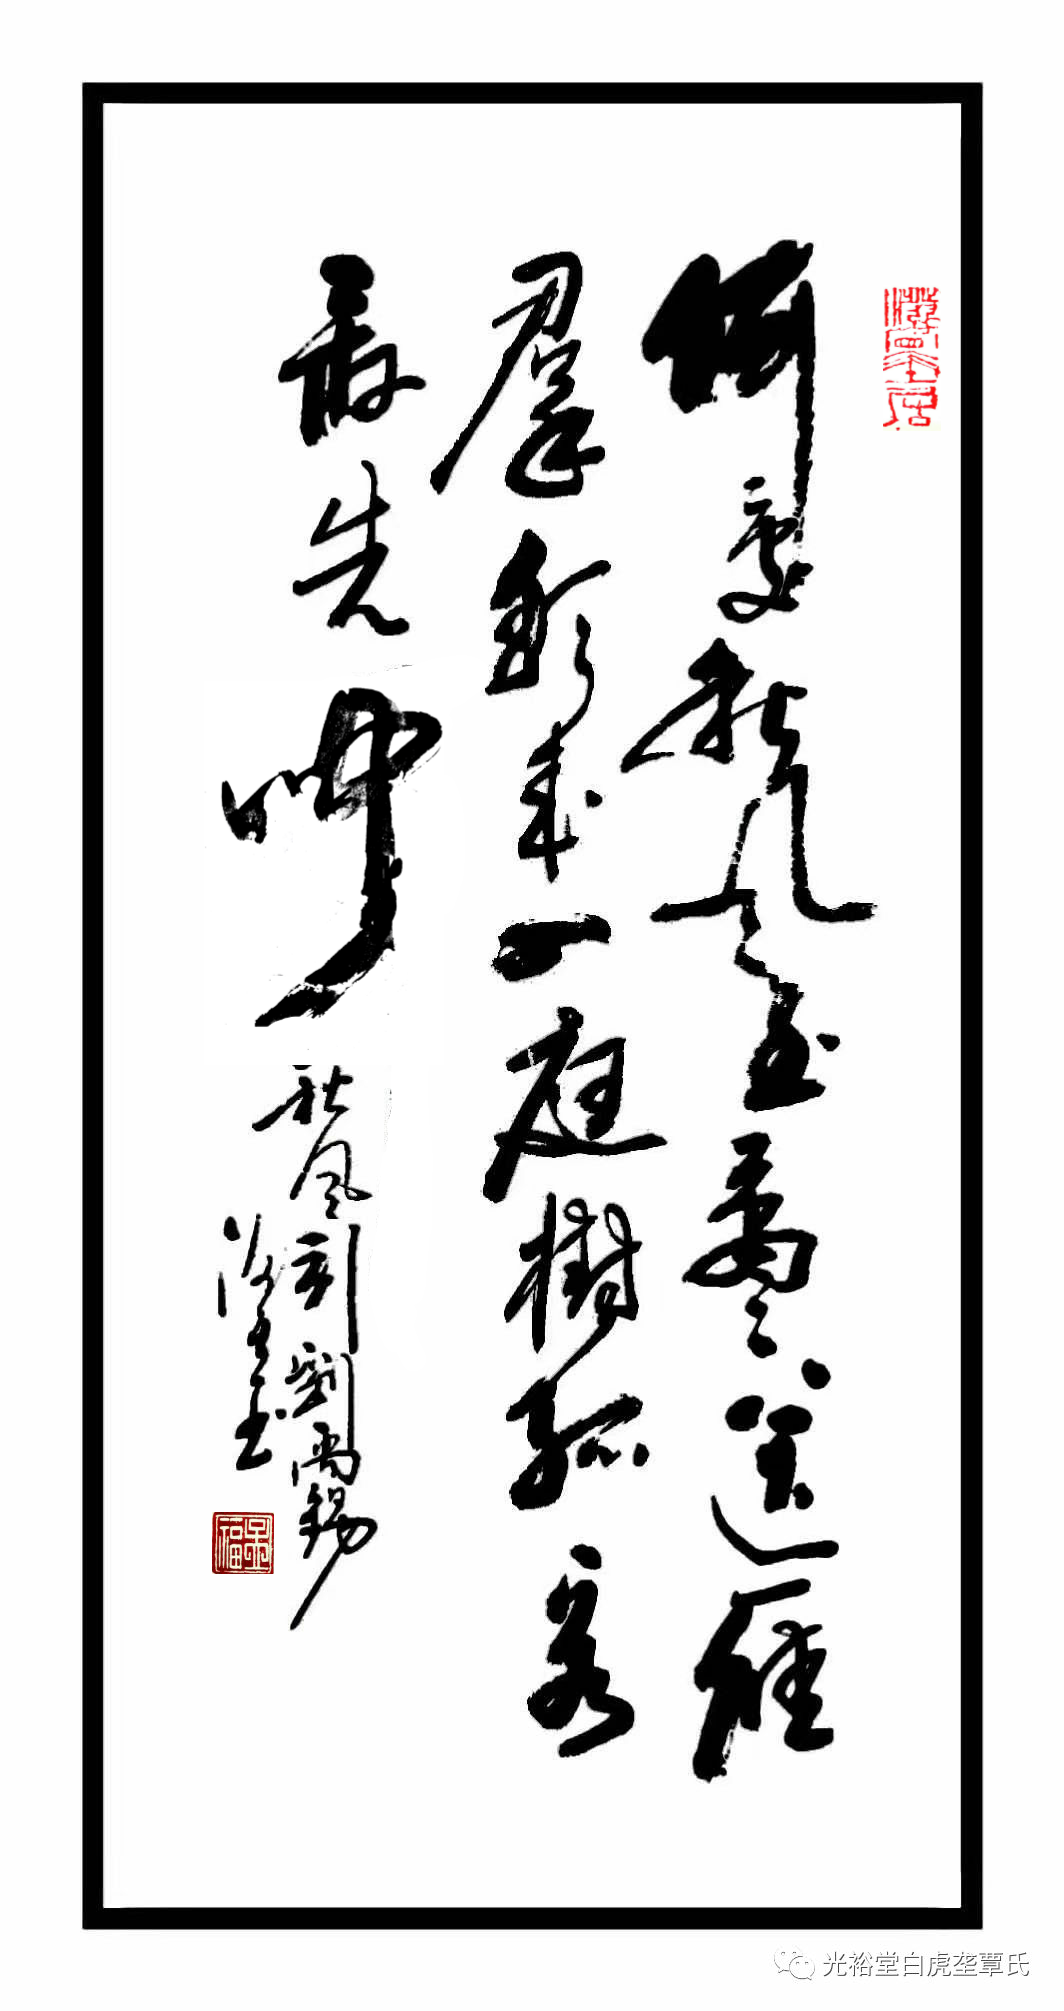 何處秋風至蕭々送雁
羣朝來入庭樹孤客
最先聞
秋風引劉禹錫
光裕堂白虎垄覃氏